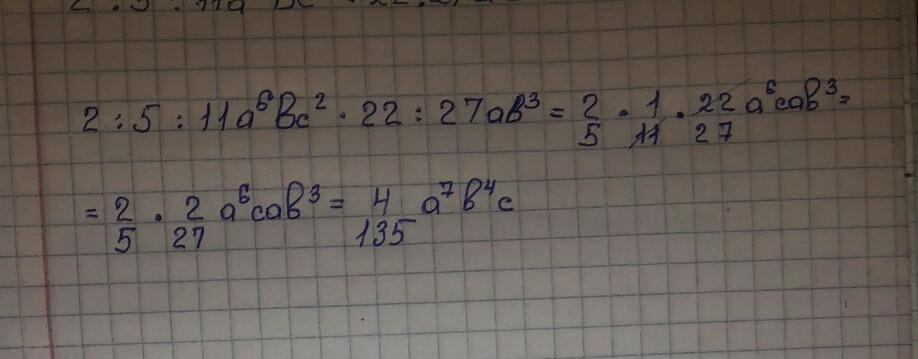 2 : 5 : 11a⁶bc² · 22 : 27ab³ = 2/5 · 1/11 · 22/27 a⁶cab³ =
= 2/5 · 2/27 a⁶cab³ = 4/135 a⁷b⁴c